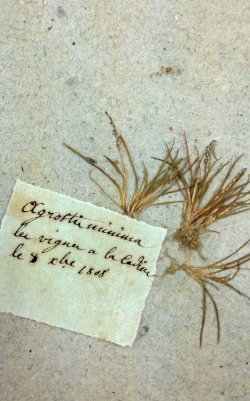 Agrostis minima
les vignes a la
le 8 xbre 1805